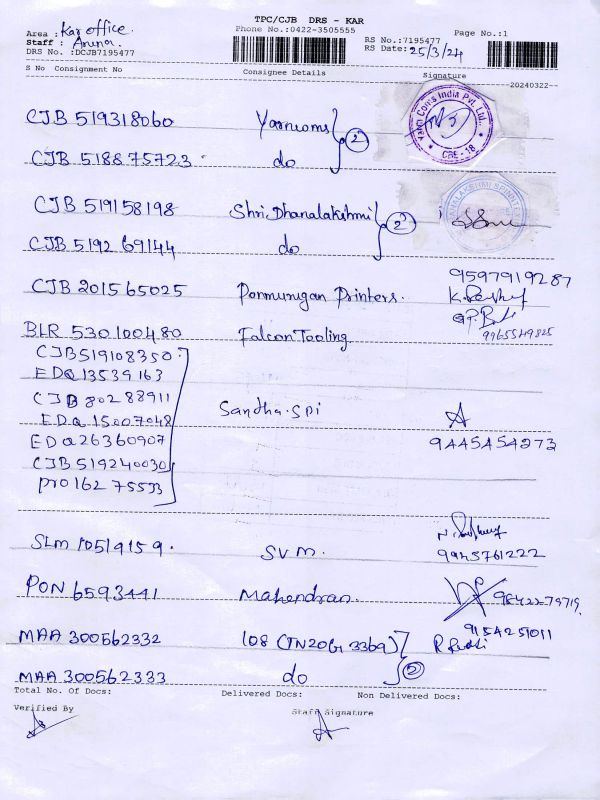 TPC/CJB DRS - KAR
Area : Kar office. Phone No.:0422-3505555 RS No.:7195477 Page No.:1
Staff : Aruna. RS Date: 25/3/24
DRS No. :DCJB7195477
S No Consignment No Consignee Details Signature 20240322-
CJB 519318060 Yarncoms } 2
CJB 518875723 do
Yarn Coms India Pvt. Ltd., CBE-18
CJB 519158198 Shri.Dhanalakshmi } 2
CJB 519269144 do
CJB 201565025 Ponmurugan Printers. 9597919287
BLR 530100480 Falcon Tooling
CJB519108350
EDQ13539163
CJB 80288911
EDQ 15007048 Sandha.SPI
EDQ26360907 9445454273
CJB519240030
PRO162 75533
SLM 10519159. SVM. 9945761222
PON 6593441 Mahendran.
MAA 300562332 108 (TN20G 3369) } 2 9154251011
MAA 300562333 do
Total No. Of Docs: Delivered Docs: Non Delivered Docs:
Verified By Staff Signature